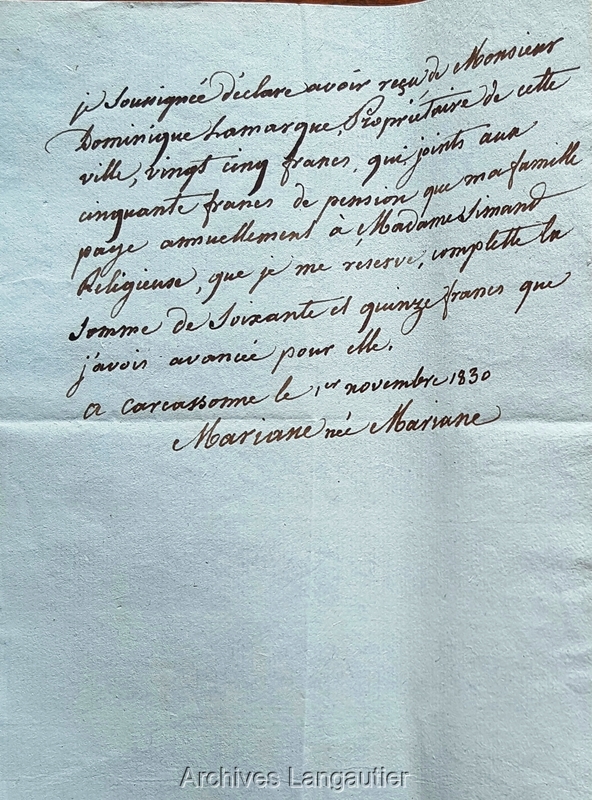 je Soussignée déclare avoir reçu de Monsieur
Dominique Lamarque, Propriétaire de cette
ville, vingt cinq francs, qui joints aux
cinquante francs de pension que ma famille
paye annuellement à Madame Simand
Religieuse, que je me réserve, complette la
Somme de Soixante et quinze francs que
j'avois avancée pour elle.
a Carcassonne le 1er novembre 1830
Mariane née Mariane
Archives Langautier